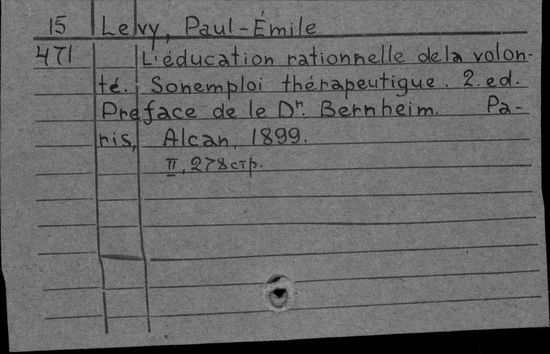 15 Levy, Paul-Émile
471 L'éducation rationnelle dela volon-
té. Sonemploi thérapeutique. 2. ed.
Préface de le Dr. Bernheim. Pa-
ris, Alcan, 1899.
II, 278 стр.